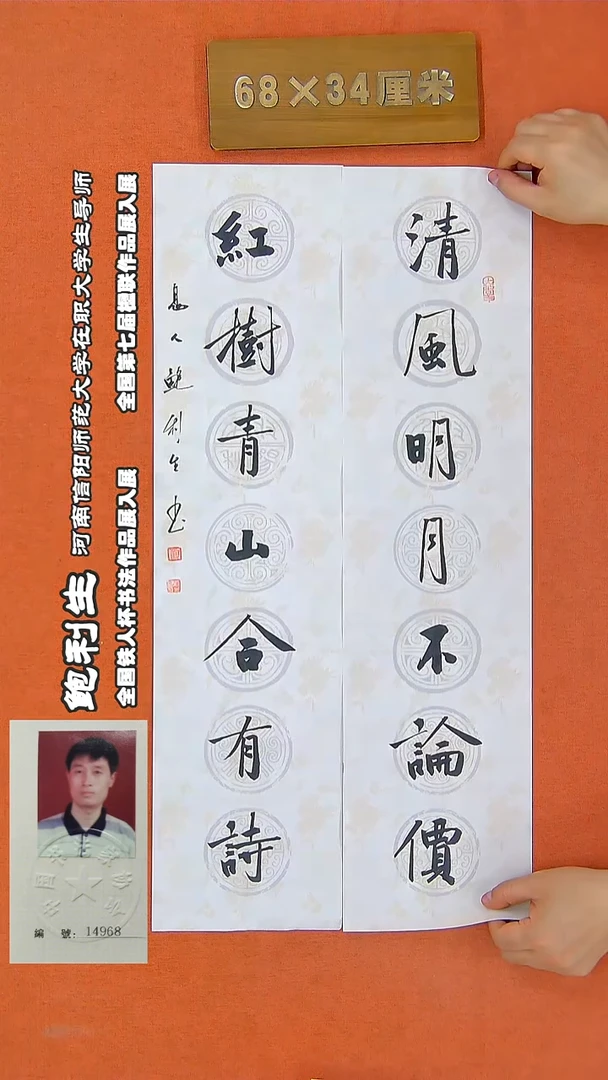 68×34厘米
清風明月不論價
紅樹青山合有詩
息人鮑利生書
鲍利生 河南信阳师范大学在职大学生导师
全国铁人杯书法作品展入展 全国第七届楹联作品展入展
編 號: 14968